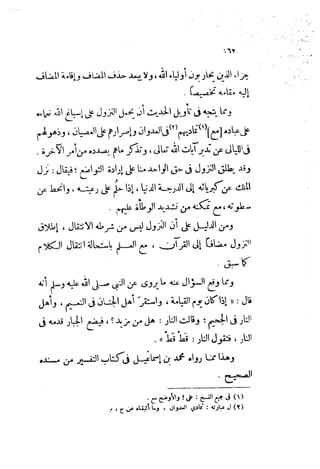 ١٦٢
جزاء الذين يحاربون أولياء الله، ولا يبعد حذف المضاف وإقامة المضاف
إليه مقامه تخصيصا.
ومما يتجه فى تأويل الحديث أن يحمل النزول على إسباغ الله نعماءه
على عباده [مع](١) تماديهم(٢) فى العدوان وإصرارهم على العصيان، وذهولهم
فى الليالى عن تدبر آيات الله تعالى، وتذكر ماهم بصدده من أمر الآخرة.
وقد يطلق النزول فى حق الواحد منا على إرادة التواضع؛ فيقال: نزل
الملك عن كبريائه إلى الدرجة الدنيا، إذا حلم على رعيته، وانحط عن
سطوته، مع تمكنه من تشديد الوطأة عليهم.
ومن الدليل على أن النزول ليس من شرطه الانتقال، إطلاق
النزول مضافا إلى القرآن، مع العلم باستحالة انتقال الكلام
كما سبق.
ومما وقع السؤال عنه ما يروى عن النبى صلى الله عليه وسلم أنه
قال: « إذا كان يوم القيامة، واستقر أهل الجنان فى النعيم، وأهل
النار فى الجحيم؛ وقالت النار: هل من مزيد؟، فيضع الجبار قدمه فى
النار، فتقول النار: قط قط ».
وهذا مما رواه محمد بن إسماعيل فى كتاب التفسير من مسنده
الصحيح.
(١) فى جميع النسخ: على؛ والأوضح مع.
(٢) ل عبارته: تمادى العدوان، وما أثبتناه عن ح، م